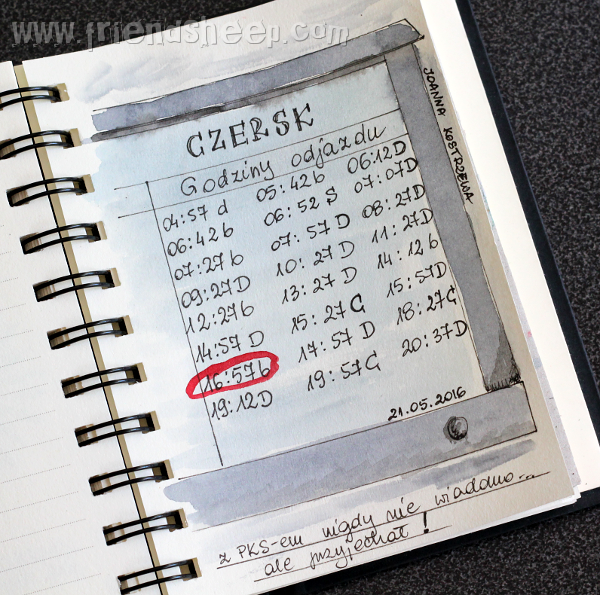 www.friendsheep.com
CZERSK
Godziny odjazdu
04:57 d 05:42b 06:12D
06:42b 06:52 S 07:07D
07:27b 07:57 D 08:27D
09:27D 10:27D 11:27D
12:27b 13:27D 14:12b
14:57 D 15:27C 15:57D
16:57b 17:57 D 18:27C
19:12D 19:57C 20:37D
21.05.2016
JOANNA KOSTRZEWA
z PKS-em nigdy nie wiadomo...
ale przyjechał!